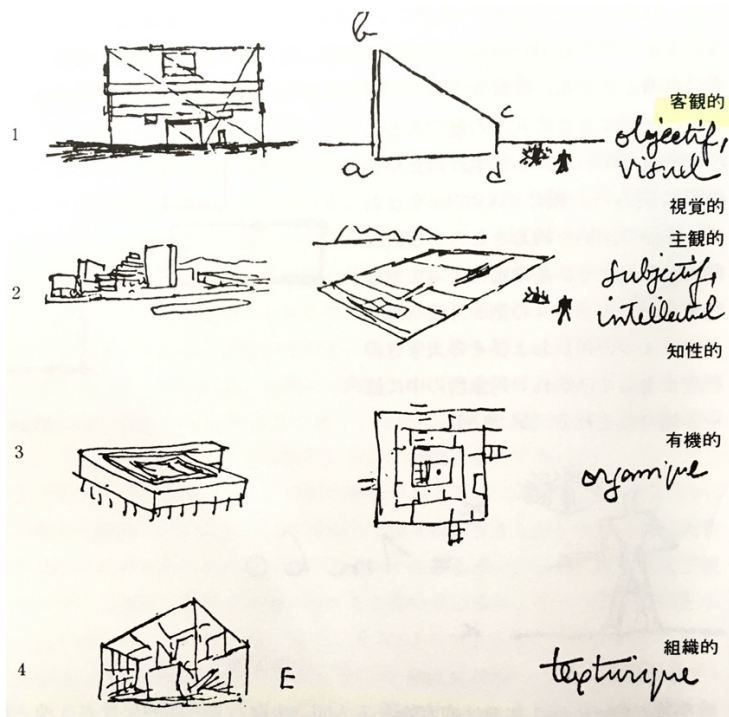 b
客観的
c
1
objectif,
a
d
visuel
視覚的
主観的
2
subjectif,
intellectuel
知性的
3
有機的
organique
組織的
4
E
texturique